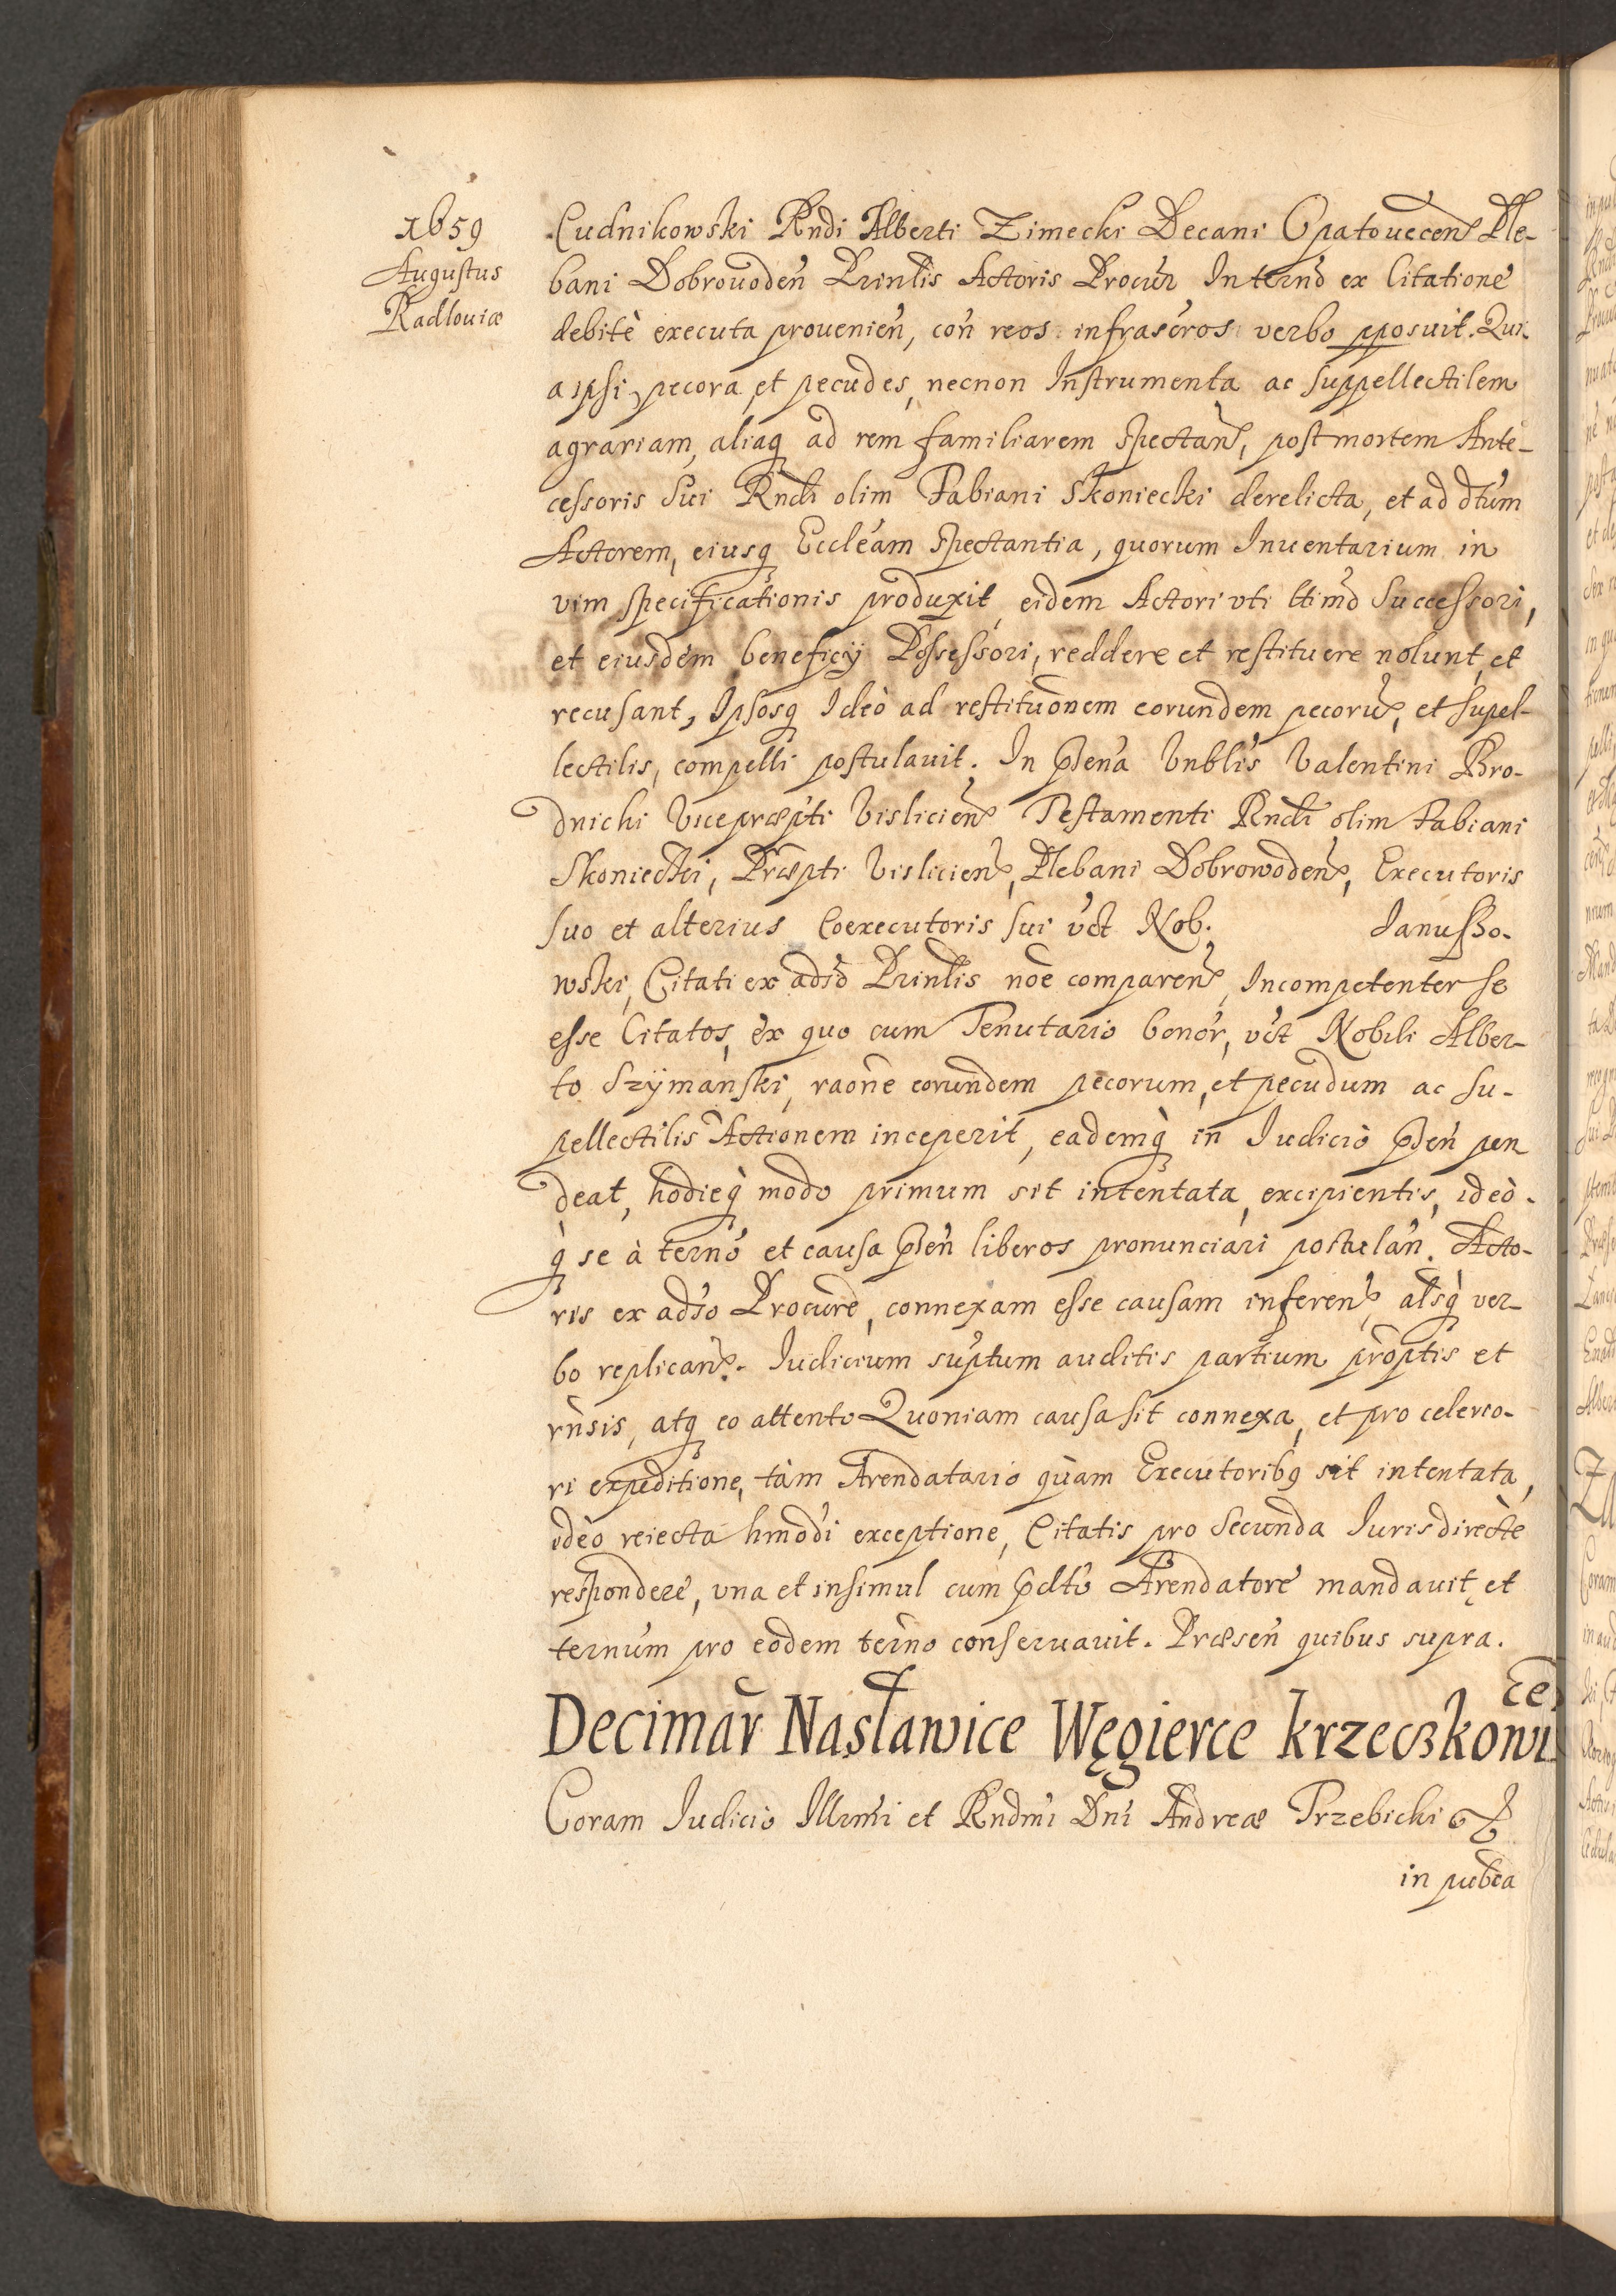 1659
Augustus
Radlouiæ
Cudnikowski Rndi Alberti Zimecki Decani Opatouecen Ple-
bani Dobrouoden Prinlis Actoris Procur In termo ex Citatione
debitè executa prouenien, con reos infrascros verbo pposuit. Qui-
a ipsi pecora et pecudes, necnon Instrumenta ac suppellectilem
agrariam, aliaq ad rem familiarem spectan, post mortem Ante-
cessoris sui Rndi olim Fabiani Skoniecki derelicta, et ad dtum
Actorem, eiusq Eccleam spectantia, quorum Inuentarium in
vim specificationis produxit, eidem Actori vti ltimo Successori,
et eiusdem beneficij Possessori, reddere et restituere nolunt, et
recusant, Ipsosq Ideò ad restituonem eorundem pecorum, et supel-
lectilis, compelli postulauit. In pñtia Vnblis Valentini Bro-
dnichi Vicepræpti Vislicien Testamenti Rndi olim Fabiani
Skoniecki, Præpti Vislicien, Plebani Dobrowoden, Executoris
suo et alterius Coexecutoris sui vct Nob. Janusso-
wski, Citati ex adso Prinlis noe comparen, Incompetenter se
esse Citatos, ex quo cum Tenutario bonor, vct Nobili Alber-
to Szÿmanski, raone eorundem pecorum, et pecudum ac su-
pellectilis Actionem inceperit, eademq in Iudicio pñen pen
deat, hodieq modo primum sit intentata, excipientis, ideò-
q se à termo et causa pñen liberos pronunciari postulan. Acto-
ris ex adso Procure, connexam esse causam inferen, alsq ver-
bo replican. Iudicium suptum auditis partium proptis et
rnsis, atq eo attento Quoniam causa sit connexa, et pro celerio-
ri expeditione, tàm Arendatario quàm Executoribq sit intentata,
ideo reiecta hmodi exceptione, Citatis pro secunda Iuris directè
respondere, vna et insimul cum pdto Arendatore mandauit, et
ternum pro eodem termo conseruauit. Præsen quibus supra.
Decimar Nasławice Węgierce krzeczkowi
ce
Coram Iudicio Illrmi et Rndmi Dni Andreæ Trzebicki &
in pubca